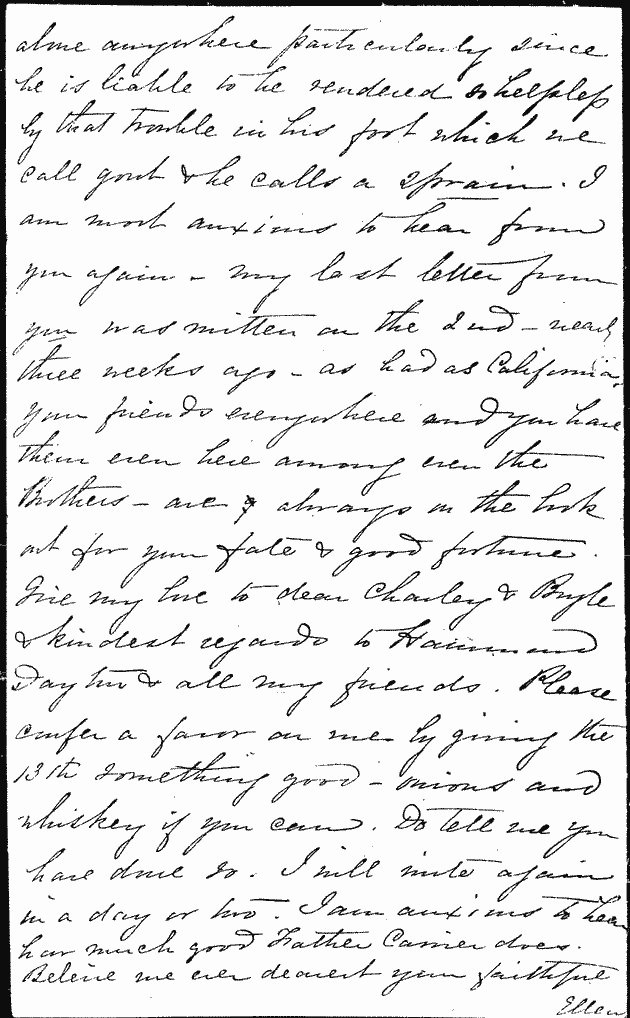 alone anywhere particularly since
he is liable to be rendered so helpless
by that trouble in his foot which we
call gout & he calls a sprain. I
am most anxious to hear from
you again - my last letter from
you was written on the 2nd - nearly
three weeks ago - as bad as California,
your friends everywhere and you have
them even here among even the
Brothers - are always on the look
out for your fate & good fortune.
Give my love to dear Charley & Boyle
& kindest regards to Hammond
Dayton & all my friends. Please
confer a favor on me by giving the
13th something good - onions and
whiskey if you can. Do tell me you
have done so. I will write again
in a day or two. I am anxious to hear
how much good Father Carrier does.
Believe me ever dearest your faithful
Ellen